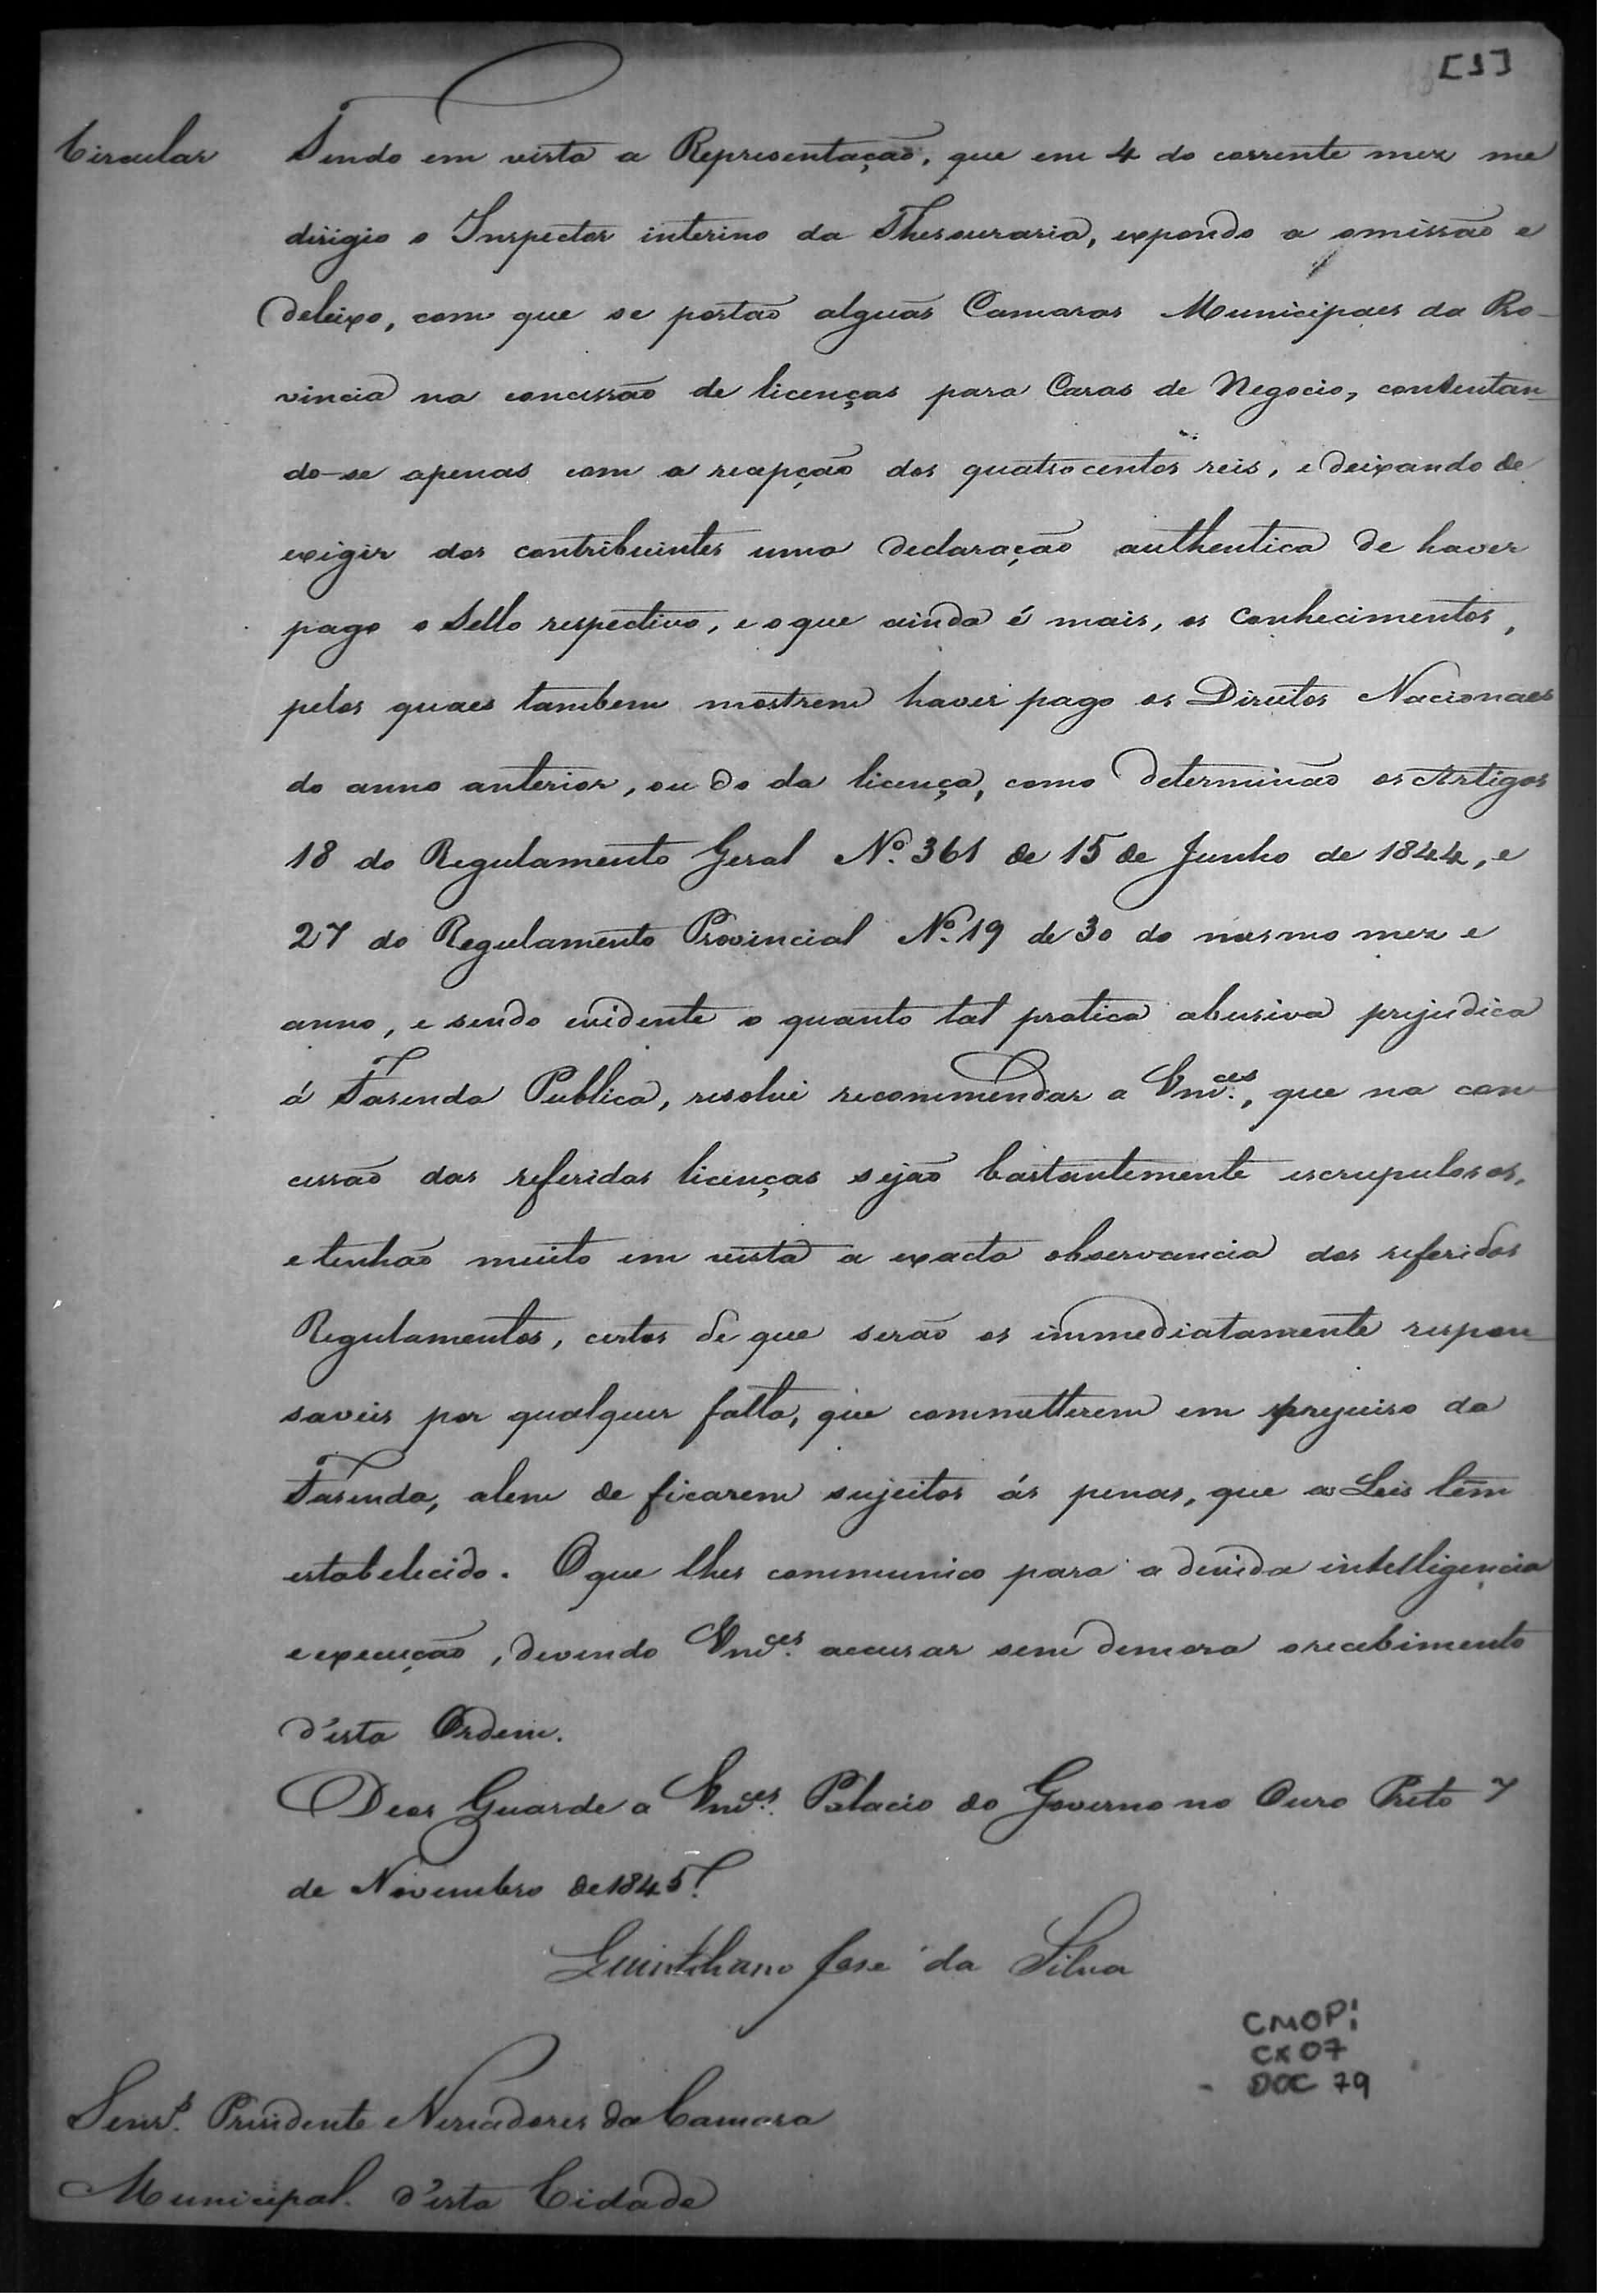 [1]
Circular Tendo em vista a Representação, que em 4 do corrente mez me
dirigio o Inspector interino da Thesouraria, expondo a omissão e
deleixo, com que se portão alguãs Camaras Municipaes da Pro-
vincia na concessão de licenças para Casas de Negocio, contentan-
do-se apenas com a recepção dos quatrocentos reis, e deixando de
exigir dos contribuintes uma declaração authentica de haver
pago o Sello respectivo, e o que ainda é mais, os Conhecimentos,
pelos quaes tambem mostrem haver pago os Direitos Nacionaes
do anno anterior, ou do da licença, como determinão os Artigos
18 do Regulamento Geral Nº. 361 de 15 de Junho de 1844, e
27 do Regulamento Provincial Nº. 19 de 30 do mesmo mez e
anno, e sendo evidente o quanto tal pratica abusiva prejudica
á Fasenda Publica, resolvi recommendar a Vmces., que na con-
cessão das referidas licenças sejão bastantemente escrupulosos,
e tenhão muito em vista a exacta observancia dos referidos
Regulamentos, certos de que serão os immediatamente respon-
saveis por qualquer falta, que commetterem em prejuiso da
Fasenda, alem de ficarem sujeitos ás penas, que as Leis têm
estabelecido. O que lhes communico para a devida intelligencia
e execução, devendo Vmces. accusar sem demora o recebimento
d'esta Ordem.
Deos Guarde a Vmces. Palacio do Governo no Ouro Preto 7
de Novembro de 1845.
Quintiliano José da Silva
CMOP:
CX 07
DOC 79
Senrs. Presidente e Vereadores da Camara
Municipal d'esta Cidade